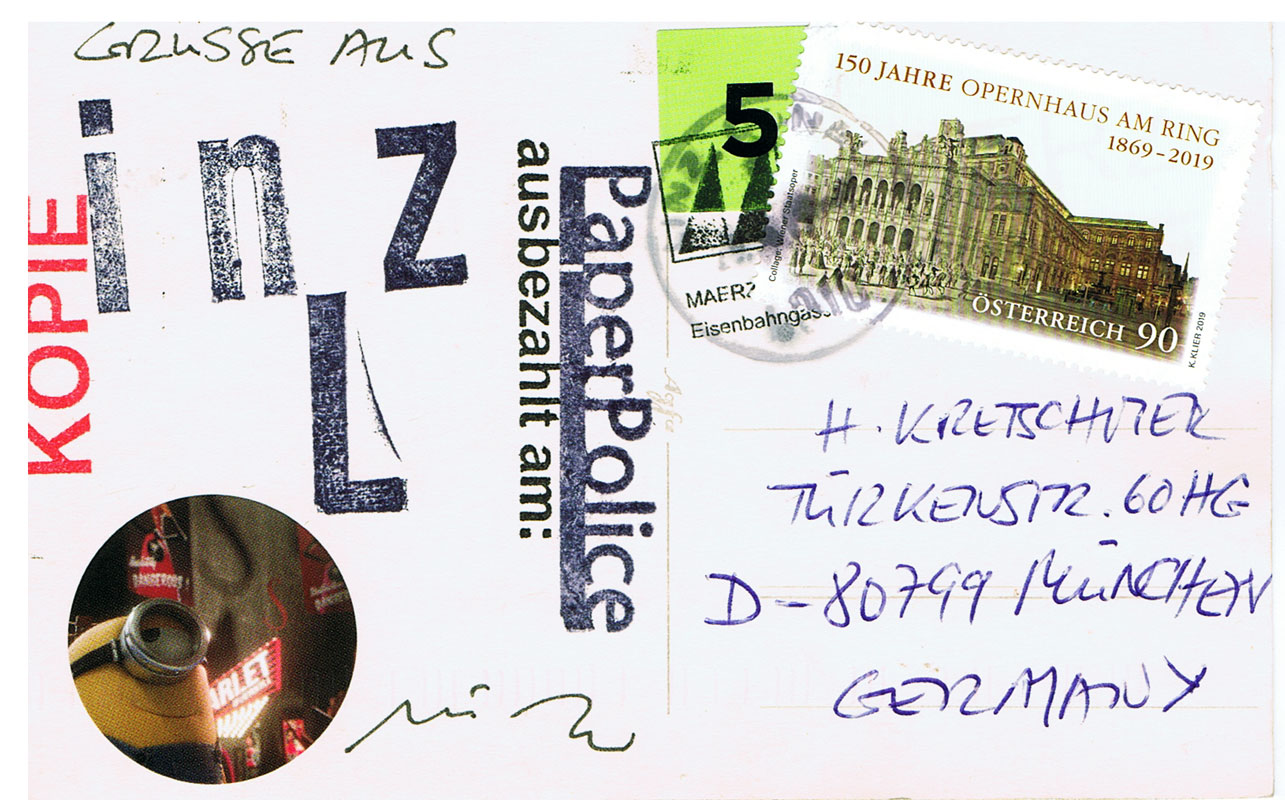 GRÜSSE AUS
inz
L
KOPIE
PaperPolice
ausbezahlt am:
DANGEROUS!
5
MAERZ
Eisenbahngass
150 JAHRE OPERNHAUS AM RING
1869–2019
Collage: Wiener Staatsoper
ÖSTERREICH 90
K. KLIER 2019
H. KRETSCHMER
TÜRKENSTR. 60 HG
D-80799 MÜNCHEN
GERMANY